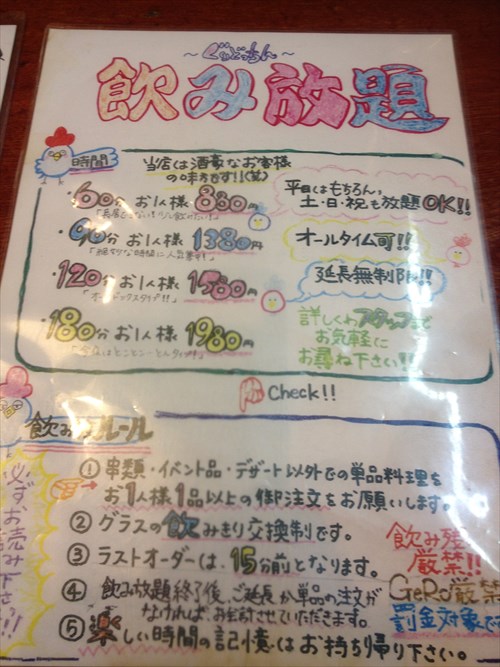 ～ぐぃどっちん～
飲み放題
時間
当店は酒豪なお客様
の味方です!!(笑)
・60分 お1人様 880円
・90分 お1人様 1380円
・120分 お1人様 1580円
・180分 お1人様 1980円
平日はもちろん、
土・日・祝も放題OK!!
オールタイム可!!
延長無制限!!
詳しくはスタッフまで
お気軽に
お尋ね下さい!!
Check!!
飲み放ルール
必ずお読み下さい!!
①串類・イベント品・デザート以外での単品料理を
お1人様1品以上の御注文をお願いします。
②グラスの飲みきり交換制です。
③ラストオーダーは、15分前となります。
④飲み放題終了後、ご延長か単品の注文が
なければ、お会計させていただきます。
⑤楽しい時間の記憶はお持ち帰り下さい。
飲み残
厳禁!!
GeRo厳禁
罰金対象で